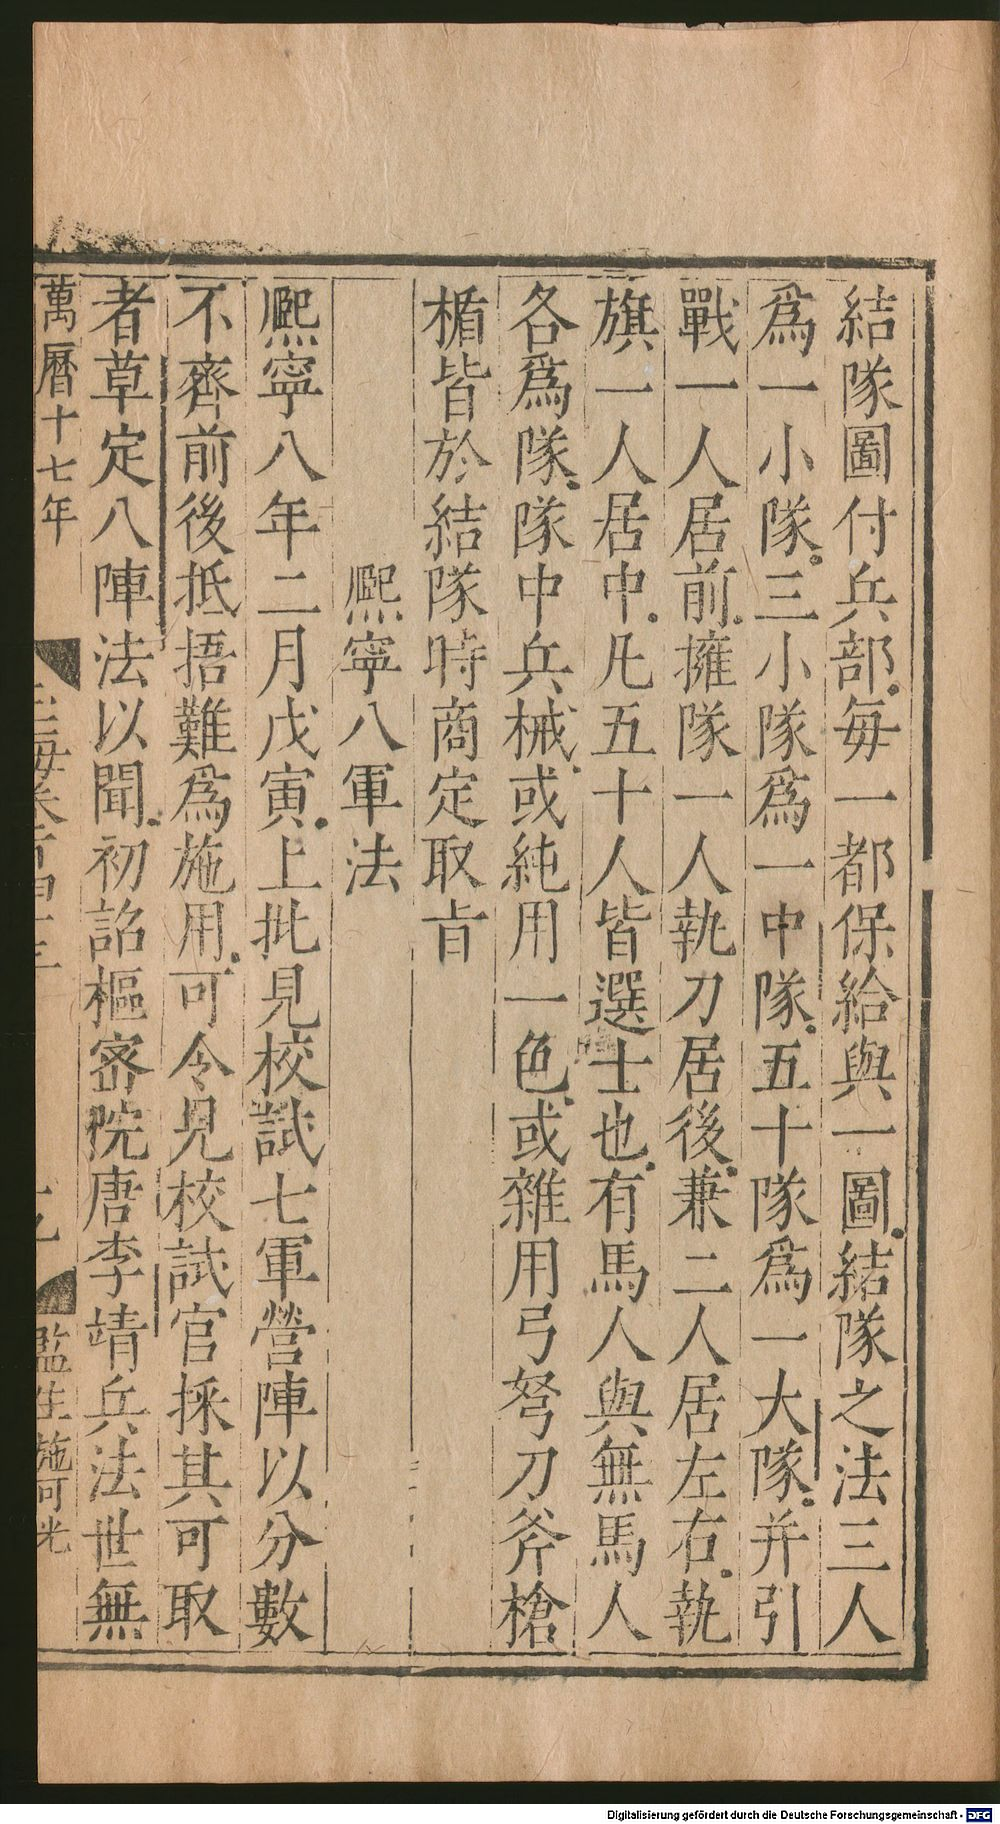 結隊圖付兵部每一都保給與一圖結隊之法三人
爲一小隊三小隊爲一中隊五十隊爲一大隊并引
戰一人居前擁隊一人執刀居後兼二人居左右執
旗一人居中凡五十人皆選士也有馬人與無馬人
各爲隊隊中兵械或純用一色或雜用弓弩刀斧槍
楯皆於結隊時商定取㫖
熈寧八軍法
熈寧八年二月戊寅上批見校試七軍營陣以分數
不齊前後抵捂難爲施用可令見校試官採其可取
者草定八陣法以聞初詔樞宻院唐李靖兵法世無
萬曆十七年
玉海卷百四十三
監生施可光
Digitalisierung gefördert durch die Deutsche Forschungsgemeinschaft - DFG